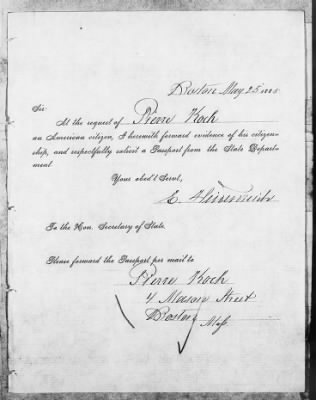 Boston May 25
Sir
At the request of Pierre Koch
an American citizen, I herewith forward evidence of his citizen-
ship, and respectfully solicit a Passport from the State Depart-
ment.
Your obed't Servt,
E.
To the Hon. Secretary of State.
Please forward the Passport per mail to
Pierre Koch
4 Mason Street
Boston
Mass